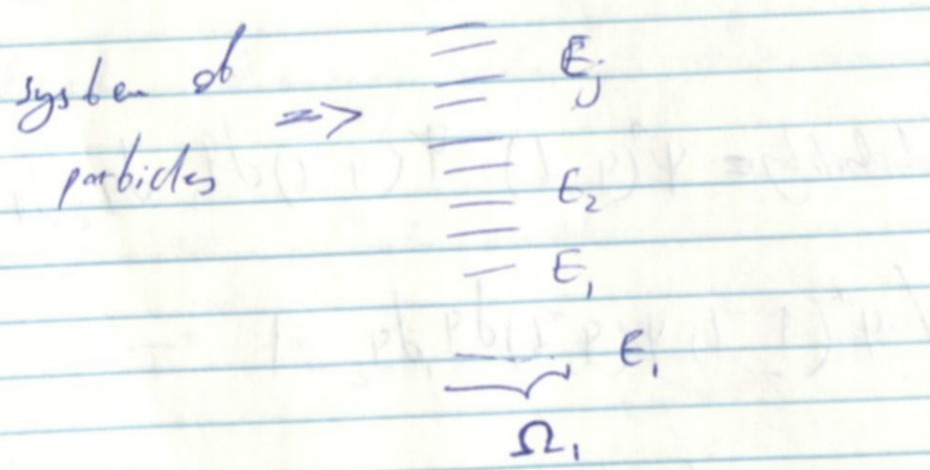 system of
particles
=>
E_j
E₂
E₁
E₁
Ω₁